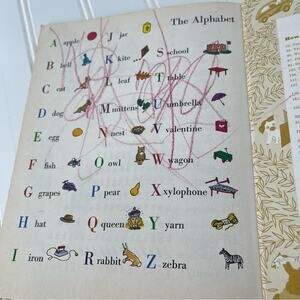 The Alphabet
A apple J jar S school
B bell K kite
C cat L leaf T table
D dog M mittens U umbrella
E egg N nest V valentine
F fish O owl W wagon
G grapes P pear X xylophone
H hat Q queen Y yarn
I iron R rabbit Z zebra
How